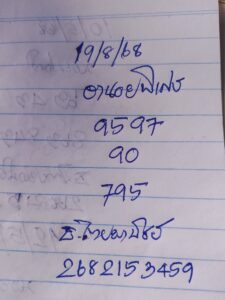 19/8/68
ฮานอยพิเศษ
9597
90
795
ธ.ไทยพาณิชย์
2682153459